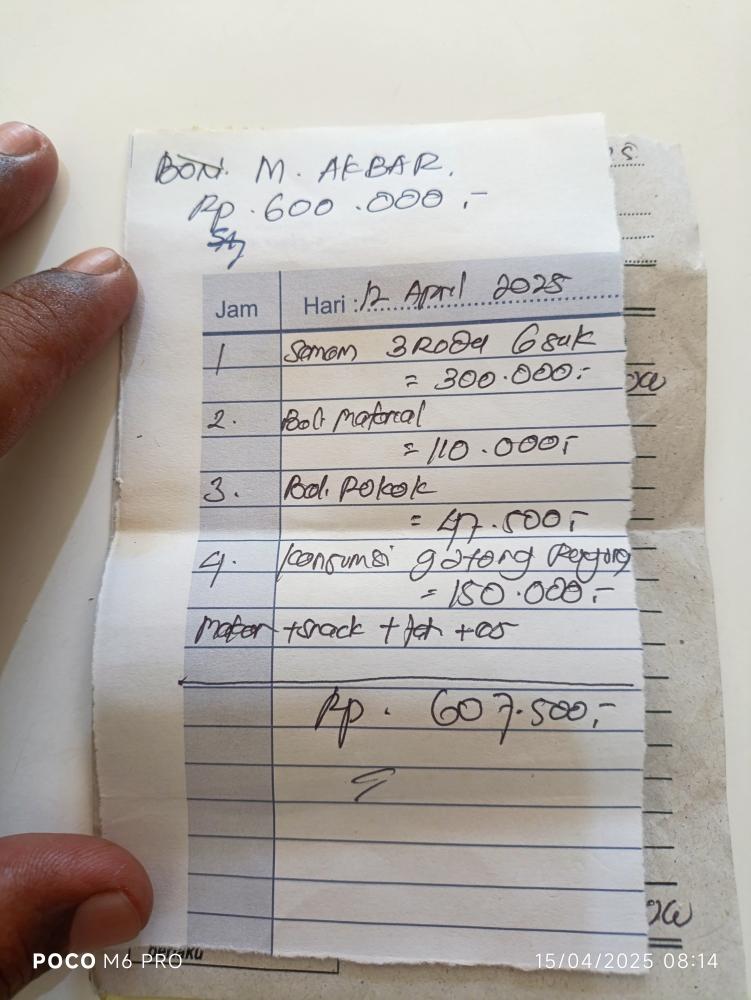 BON. M. AKBAR.
Rp. 600.000,-
Jam
Hari : 12 April 2025
1 Semen 3 Roda 6 sak
= 300.000,-
2. Beli Material
= 110.000,-
3. Beli Rokok
= 47.500,-
4. Konsumsi gotong Royong
= 150.000,-
Makan + snack + teh + es
Rp. 607.500,-
POCO M6 PRO
15/04/2025 08:14